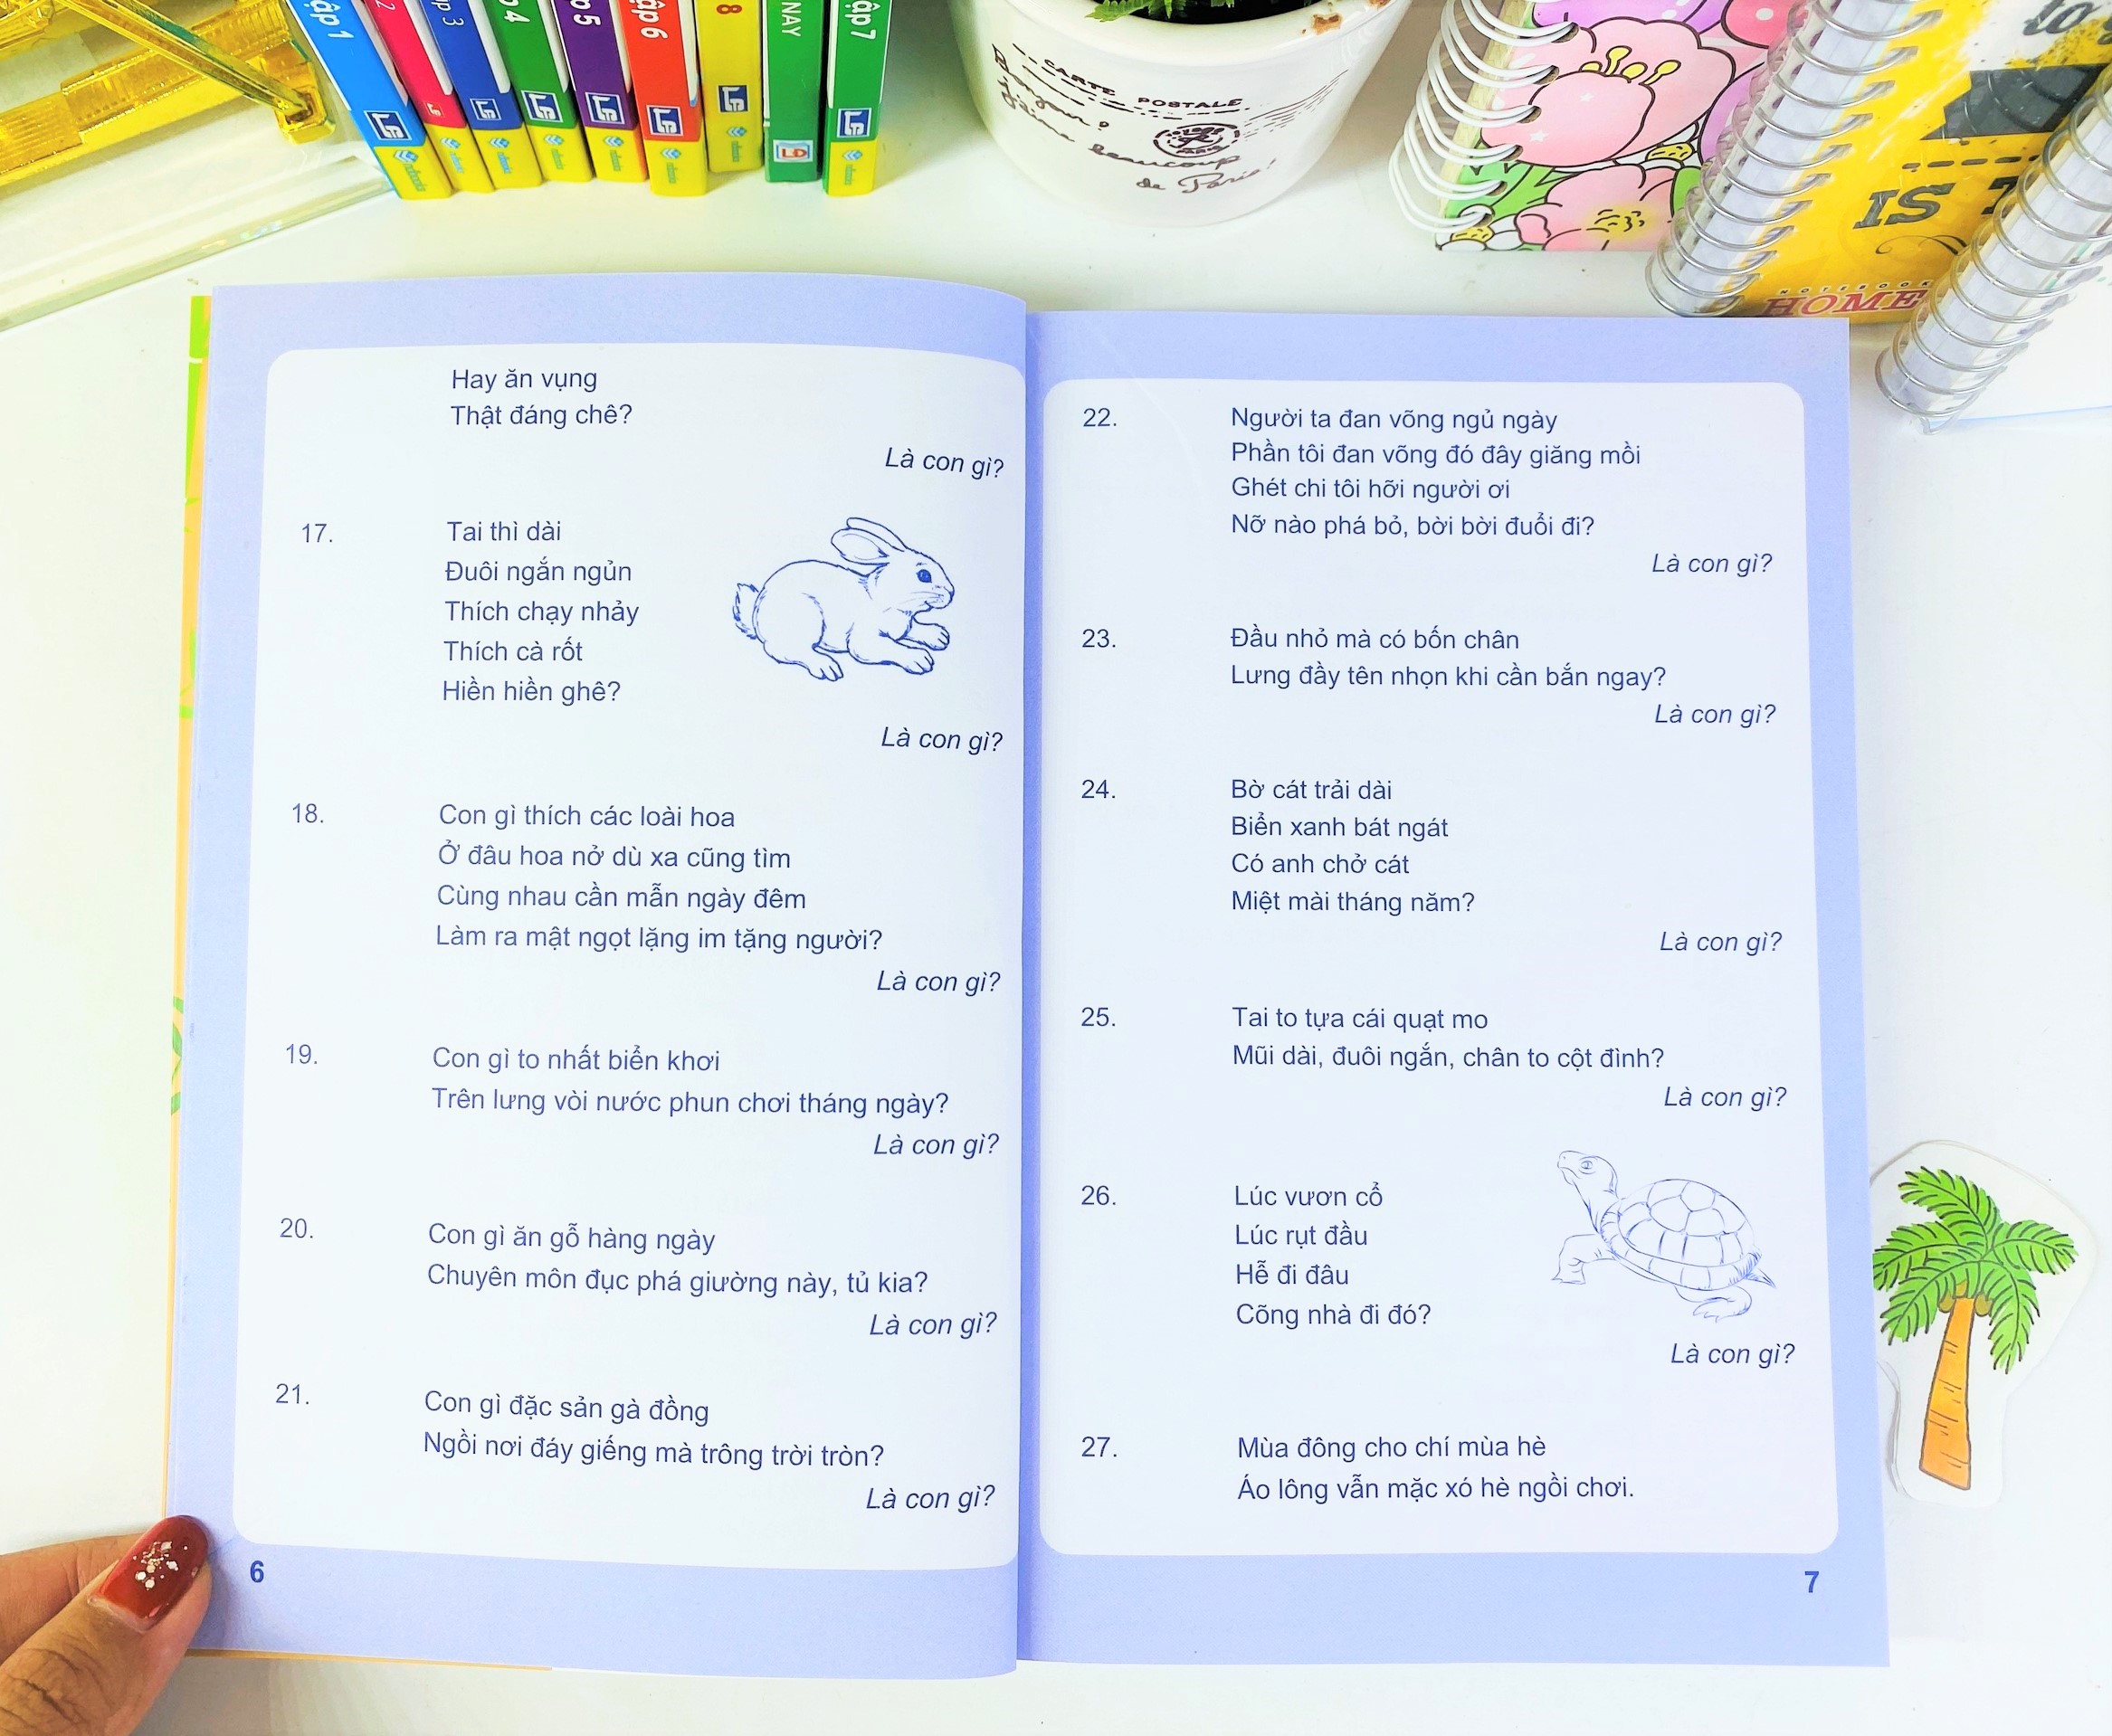 ập 1
2
p 3
4
5
ập 6
8
NAY
LĐ
ập 7
CARTE POSTALE
Bonjour?
J'aime beaucoup
de Paris!
to
IS
NOTEBOOK
HOME
Hay ăn vụng
Thật đáng chê?
Là con gì?
17.
Tai thì dài
Đuôi ngắn ngủn
Thích chạy nhảy
Thích cà rốt
Hiền hiền ghê?
Là con gì?
18.
Con gì thích các loài hoa
Ở đâu hoa nở dù xa cũng tìm
Cùng nhau cần mẫn ngày đêm
Làm ra mật ngọt lặng im tặng người?
Là con gì?
19.
Con gì to nhất biển khơi
Trên lưng vòi nước phun chơi tháng ngày?
Là con gì?
20.
Con gì ăn gỗ hàng ngày
Chuyên môn đục phá giường này, tủ kia?
Là con gì?
21.
Con gì đặc sản gà đồng
Ngồi nơi đáy giếng mà trông trời tròn?
Là con gì?
6
22.
Người ta đan võng ngủ ngày
Phần tôi đan võng đó đây giăng mồi
Ghét chi tôi hỡi người ơi
Nỡ nào phá bỏ, bời bời đuổi đi?
Là con gì?
23.
Đầu nhỏ mà có bốn chân
Lưng đầy tên nhọn khi cần bắn ngay?
Là con gì?
24.
Bờ cát trải dài
Biển xanh bát ngát
Có anh chở cát
Miệt mài tháng năm?
Là con gì?
25.
Tai to tựa cái quạt mo
Mũi dài, đuôi ngắn, chân to cột đình?
Là con gì?
26.
Lúc vươn cổ
Lúc rụt đầu
Hễ đi đâu
Cõng nhà đi đó?
Là con gì?
27.
Mùa đông cho chí mùa hè
Áo lông vẫn mặc xó hè ngồi chơi.
7